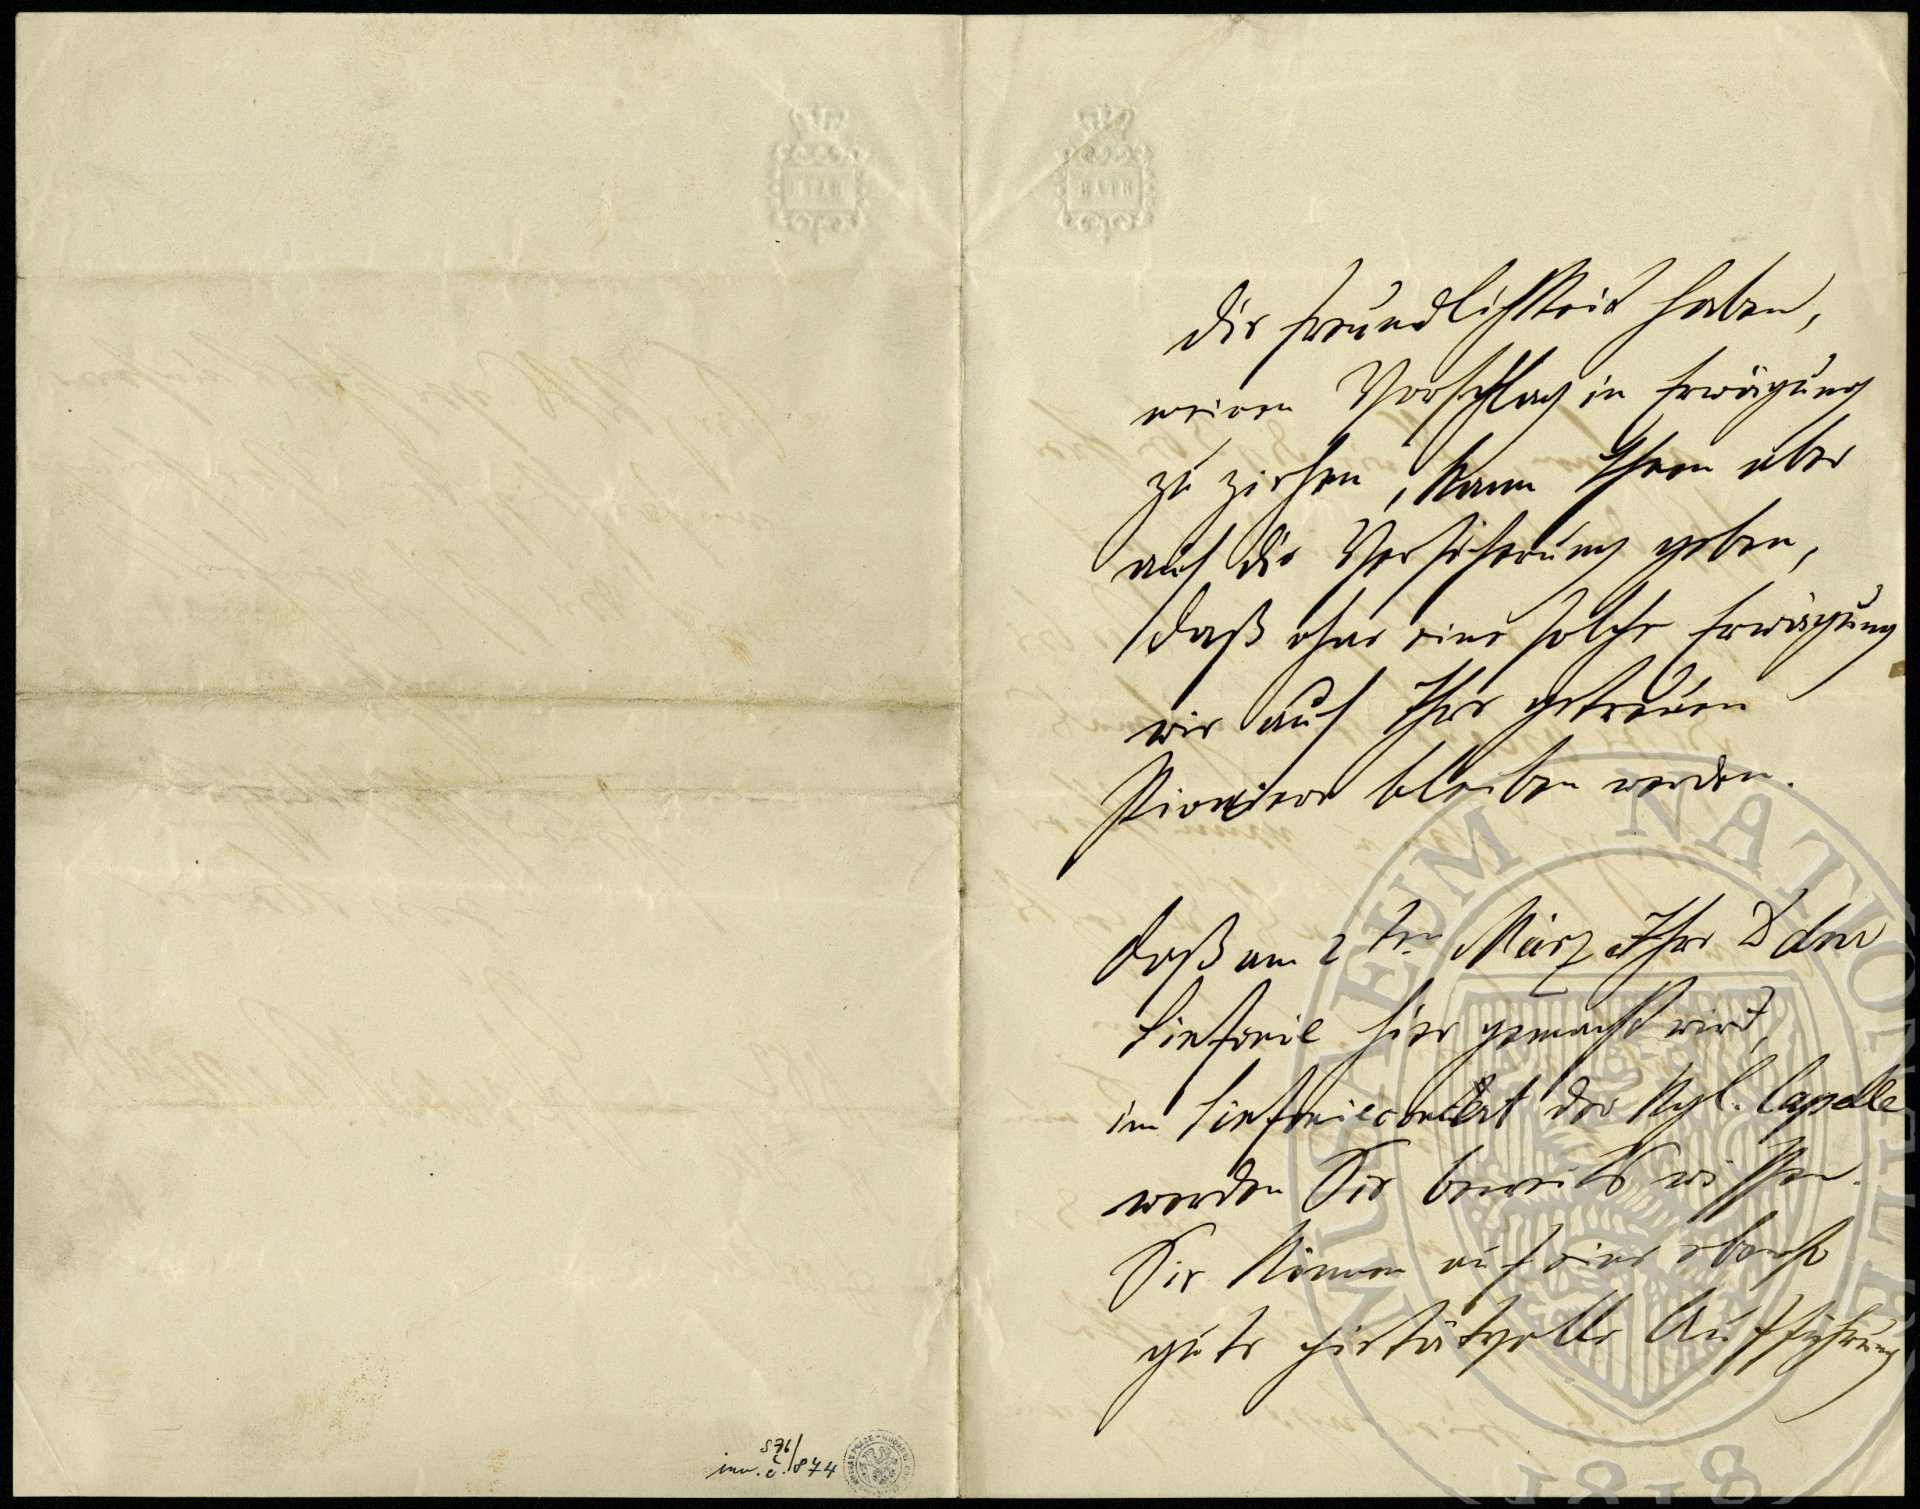 BATH
BATH
die Freundlichkeit haben,
meinen Vorschlag in Erwägung
zu ziehen, kann Ihnen aber
auch die Versicherung geben,
daß ohne eine solche Erwägung
wir auch Ihre getreuen
Pioniere bleiben werden.
Daß am 2ten März Ihre D dur
Sinfonie hier gemacht wird,
im Sinfonieconcert der Kgl. Capelle
werden Sie bereits wissen.
Sie können auf eine ebenso
gute pietätvolle Aufführung
S 76/
inv. č. 874
MUSAEUM NATIONALE
1818